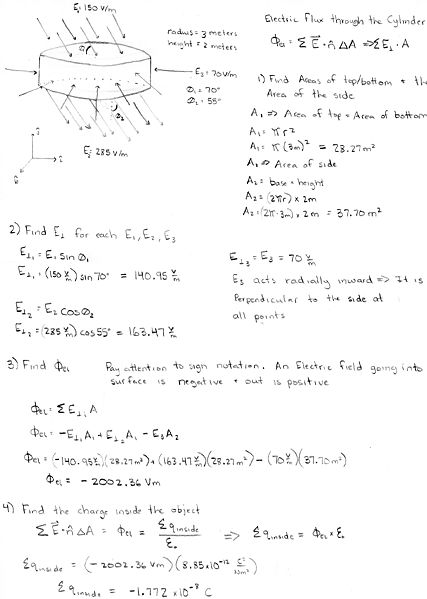 E₁= 150 V/m
radius = 3 meters
height = 2 meters
E₃ = 70 V/m
Θ₁ = 70°
Θ₂ = 55°
Θ₁
Θ₂
E₂= 285 V/m
Electric flux through the Cylinder
Φel = Σ E⃗ · n̂ ΔA ⇒ ΣE⊥ · A
1) Find Areas of top/bottom + the
Area of the side
A₁ ⇒ Area of top = Area of bottom
A₁ = πr²
A₁ = π(3m)² = 28.27m²
A₂ ⇒ Area of side
A₂ = base × height
A₂ = (2πr) × 2m
A₂ = (2π·3m) × 2m = 37.70 m²
2) Find E⊥ for each E₁, E₂, E₃
E⊥₁ = E₁ sin Θ₁
E⊥₁ = (150 V/m) sin 70° = 140.95 V/m
E⊥₂ = E₂ cos Θ₂
E⊥₂ = (285 V/m) cos 55° = 163.47 V/m
E⊥₃ = E₃ = 70 V/m
E₃ acts radially inward ⇒ It is
Perpendicular to the side at
all points
3) Find Φel Pay attention to sign notation. An Electric field going into
surface is negative + out is positive
Φel = ΣE⊥ᵢ A
Φel = -E⊥₁A₁ + E⊥₂A₁ - E₃A₂
Φel = (-140.95 V/m)(28.27m²) + (163.47 V/m)(28.27m²) - (70 V/m)(37.70m²)
Φel = - 2002.36 Vm
4) Find the charge inside the object
Σ E⃗ · n̂ ΔA = Φel = Σq inside / ε₀ ⇒ Σq inside = Φel × ε₀
Σq inside = (-2002.36 Vm)(8.85×10⁻¹² C²/Nm²)
Σq inside = -1.772 ×10⁻⁸ C